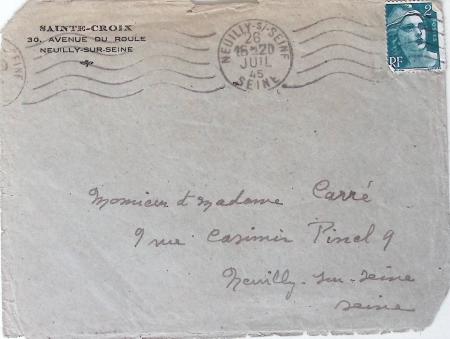 SAINTE-CROIX
30, AVENUE DU ROULE
NEUILLY-SUR-SEINE
NEUILLY-S/-SEINE
26
16 H 20
JUIL
45
SEINE
2
RF
Monsieur & Madame Carré
9 rue Casimir Pinel 9
Neuilly-sur-Seine
Seine